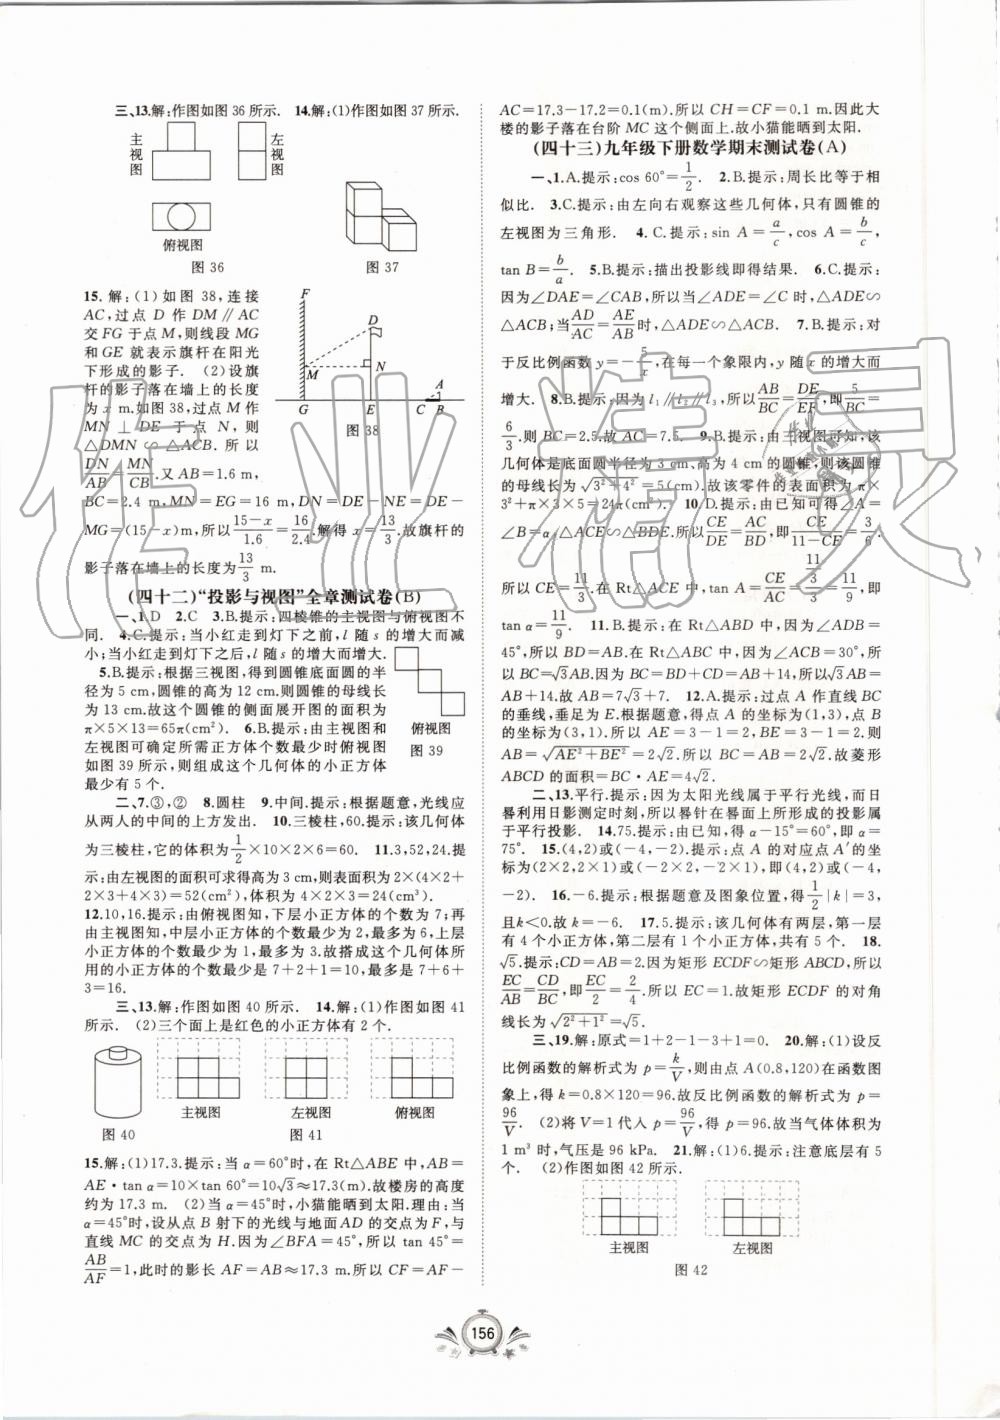 三、13.解:作图如图 36 所示. 14.解:(1)作图如图 37 所示.
主视图
左视图
俯视图
图 36
图 37
15. 解: (1) 如图 38, 连接
AC, 过点 D 作 DM∥AC
交 FG 于点 M, 则线段 MG
和 GE 就表示旗杆在阳光
下形成的影子. (2) 设旗
杆的影子落在墙上的长度
为 x m. 如图 38, 过点 M 作
MN ⊥ DE 于点 N, 则
△DMN ∽ △ACB. 所以
DN/AB=MN/CB. 又 AB=1.6 m,
F
D
M
N
A
G
E
C
B
图 38
BC=2.4 m, MN=EG=16 m, DN=DE-NE=DE-
MG=(15-x)m,所以 (15-x)/1.6=16/2.4. 解得 x=13/3. 故旗杆的
影子落在墙上的长度为 13/3 m.
(四十二)“投影与视图”全章测试卷(B)
一、1.D 2.C 3.B.提示:四棱锥的主视图与俯视图不
同. 4.C.提示:当小红走到灯下之前,l 随 s 的增大而减
小;当小红走到灯下之后,l 随 s 的增大而增大.
5.B.提示:根据三视图,得到圆锥底面圆的半
径为 5 cm,圆锥的高为 12 cm.则圆锥的母线长
为 13 cm.故这个圆锥的侧面展开图的面积为
π×5×13=65π(cm²). 6.B.提示:由主视图和
左视图可确定所需正方体个数最少时俯视图
如图 39 所示,则组成这个几何体的小正方体
最少有 5 个.
俯视图
图 39
二、7.③,② 8.圆柱 9.中间.提示:根据题意,光线应
从两人的中间的上方发出. 10.三棱柱,60.提示:该几何体
为三棱柱,它的体积为 1/2×10×2×6=60. 11.3,52,24.提
示:由左视图的面积可求得高为 3 cm,则表面积 2×(4×2+
2×3+4×3)=52(cm²),体积为 4×2×3=24(cm³).
12.10,16.提示:由俯视图知,下层小正方体的个数为 7;再
由主视图知,中层小正方体的个数最少为 2,最多为 6,上层
小正方体的个数最少为 1,最多为 3.故搭成这个几何体所
用的小正方体的个数最少是 7+2+1=10,最多是 7+6+
3=16.
三、13.解:作图如图 40 所示. 14.解:(1)作图如图 41
所示. (2)三个面上是红色的小正方体有 2 个.
主视图
左视图
俯视图
图 40
图 41
15.解:(1)17.3.提示:当 α=60°时,在 Rt△ABE 中,AB=
AE·tan α=10×tan 60°=10√3≈17.3(m).故楼房的高度
约为 17.3 m. (2)当 α=45°时,小猫能晒到太阳.理由:当
α=45°时,设从点 B 射下的光线与地面 AD 的交点为 F,与
直线 MC 的交点为 H.因为∠BFA=45°,所以 tan 45°=
AB/AF=1,此时的影长 AF=AB≈17.3 m.所以 CF=AF-
AC=17.3-17.2=0.1(m).所以 CH=CF=0.1 m.因此大
楼的影子落在台阶 MC 这个侧面上.故小猫能晒到太阳.
(四十三)九年级下册数学期末测试卷(A)
一、1.A.提示:cos 60°=1/2. 2.B.提示:周长比等于相
似比. 3.C.提示:由左向右观察这些几何体,只有圆锥的
左视图为三角形. 4.C.提示:sin A=a/c,cos A=b/c,
tan B=b/a. 5.B.提示:描出投影线即得结果. 6.C.提示:
因为∠DAE=∠CAB,所以当∠ADE=∠C 时,△ADE∽
△ACB;当 AD/AC=AE/AB 时,△ADE∽△ACB. 7.B.提示:对
于反比例函数 y=-5/x,在每一个象限内,y 随 x 的增大而
增大. 8.B.提示:因为 l₁∥l₂∥l₃,所以 AB/BC=DE/EF,即 5/BC=
6/3.则 BC=2.5.故 AC=7.5. 9.B.提示:由三视图可知,该
几何体是底面圆半径为 3 cm、高为 4 cm 的圆锥,则该圆锥
的母线长为 √3²+4²=5(cm).故该零件的表面积为 π×
3²+π×3×5=24π(cm²). 10.D.提示:由已知可得∠A=
∠B=α,△ACE∽△BDE.所以 CE/DE=AC/BD,即 CE/(11-CE)=3/6.
所以 CE=11/3.在 Rt△ACE 中,tan A=CE/AC=(11/3)/3=11/9,即
tan α=11/9. 11.B.提示:在 Rt△ABD 中,因为∠ADB=
45°,所以 BD=AB.在 Rt△ABC 中,因为∠ACB=30°,所
以 BC=√3AB.因为 BC=BD+CD=AB+14,所以√3AB
=AB+14.故 AB=7√3+7. 12.A.提示:过点 A 作直线 BC
的垂线,垂足为 E.根据题意,得点 A 的坐标为(1,3),点 B
的坐标为(3,1).所以 AE=3-1=2,BE=3-1=2.则
AB=√AE²+BE²=2√2.所以 BC=AB=2√2.故菱形
ABCD 的面积=BC·AE=4√2.
二、13.平行.提示:因为太阳光线属于平行光线,而日
晷利用日影测定时刻,所以晷针在晷面上所形成的投影属
于平行投影. 14.75.提示:由已知,得 α-15°=60°,即 α=
75°. 15.(4,2)或(-4,-2).提示:点 A 的对应点 A′的坐
标为(2×2,2×1)或(-2×2,-2×1),即(4,2)或(-4,
-2). 16.-6.提示:根据题意及图象位置,得 1/2|k|=3,
且 k<0.故 k=-6. 17.5.提示:该几何体有两层,第一层
有 4 个小正方体,第二层有 1 个小正方体,共有 5 个. 18.
√5.提示:CD=AB=2.因为矩形 ECDF∽矩形 ABCD,所以
EC/AB=CD/BC,即 EC/2=2/4.所以 EC=1.故矩形 ECDF 的对角
线长为√2²+1²=√5.
三、19.解:原式=1+2-1-3+1=0. 20.解:(1)设反
比例函数的解析式为 p=k/V.则由点 A(0.8,120)在函数图
象上,得 k=0.8×120=96.故反比例函数的解析式为 p=
96/V. (2)将 V=1 代入 p=96/V,得 p=96.故当气体体积为
1 m³ 时,气压是 96 kPa. 21.解:(1)6.提示:注意底层有 5
个. (2)作图如图 42 所示.
主视图
左视图
图 42
156
作业精灵